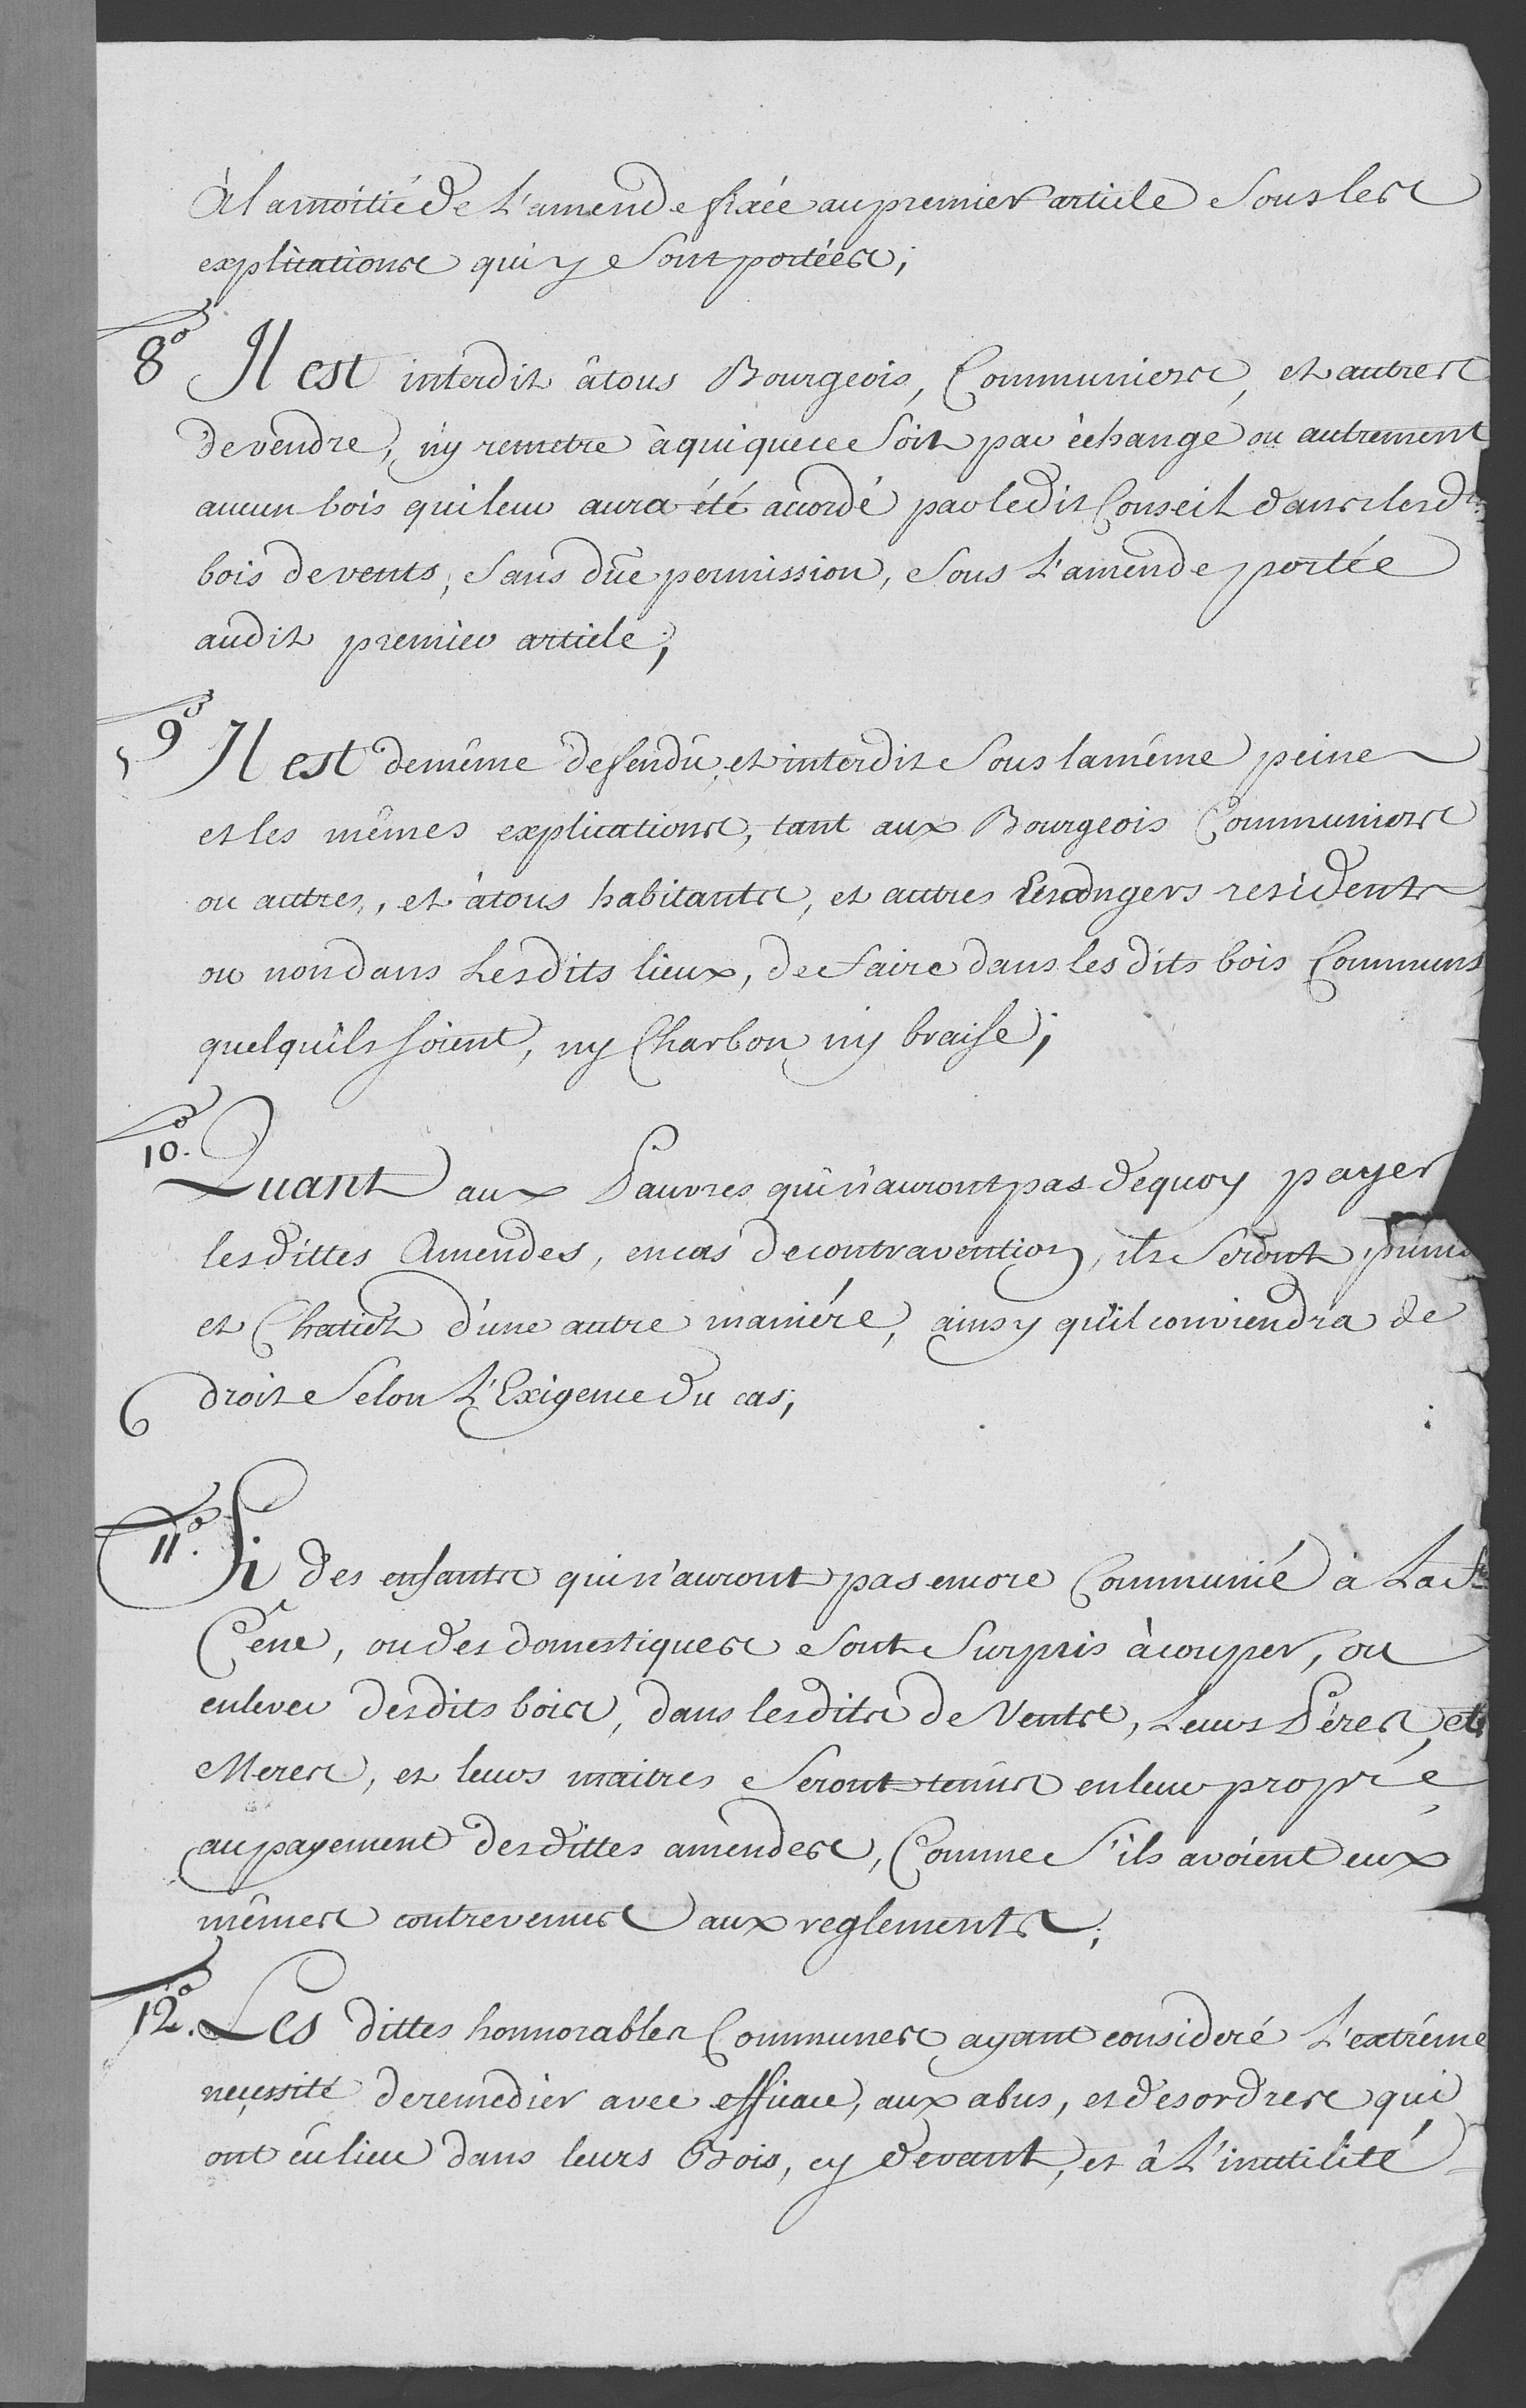 à la moitié de L'amende fixée au premier article Sous les
explications qui y Sont portées;
8.o Il est interdit à tous Bourgeois, Communiers, et autres
de vendre, ny remetre à qui que ce Soit par échange ou autrement
aucun bois qui leur aura été accordé par ledit Conseil dans lesdts
bois devents, Sans düe permission, Sous L'amende portée
audit premier article;
9.o Il est de même defendu, et interdit Sous la même peine
et les mêmes explications, tant aux Bourgeois Communiers
ou autres, et à tous habitants, et autres Etrangers residents
ou non dans Lesdits lieux, de faire dans les dits bois Communs
quelqu'ils soient, ny Charbon ny braise;
10.o Quant aux Pauvres qui n'auront pas dequoy payer
lesdittes Amendes, en cas de contravention, ils Seront punis
et Chatiez d'une autre maniére, ainsy qu'il conviendra de
droit Selon L'Exigence du cas;
11.o Si des enfants qui n'auront pas encore Communié à La Ste
Cêne, ou des domestiques Sont Surpris à couper, ou
enlever desdits bois, dans lesdits de Vents, Leurs Péres, et
Meres, et leurs maitres Seront tenûs en leur propre
au payement desdittes amendes, Comme S'ils avoient eux
mêmes contrevenus aux reglements;
12.o Les dittes honnorables Communes ayant consideré L'extréme
necessité de remedier avec efficace, aux abus, et desordres qui
ont eû lieu dans leurs Bois, cy devant, et à L'inutilité